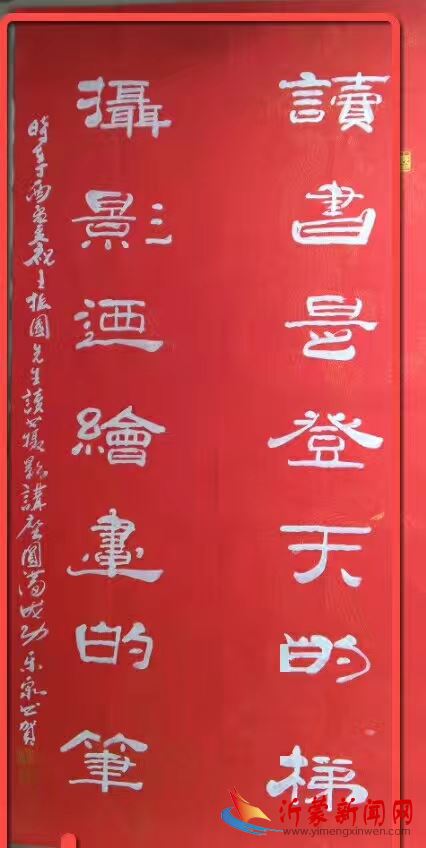 讀書是登天的梯
攝影迺繪畫的筆
時在丁酉年夏祝王振國先生讀書攝影講座圓滿成功 樂泉書賀
沂蒙新闻网
www.yimengxinwen.com